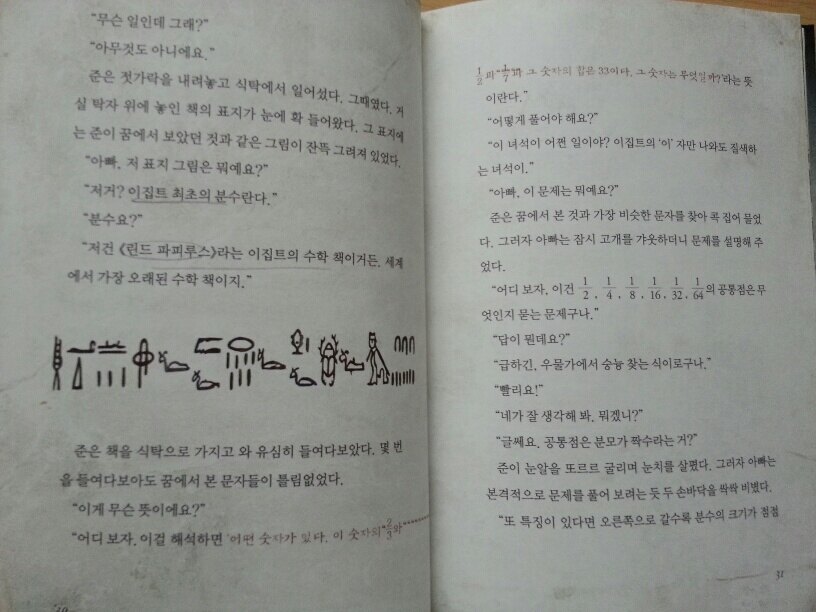 “무슨 일인데 그래?”
“아무것도 아니에요.”
준은 젓가락을 내려놓고 식탁에서 일어섰다. 그때였다. 거
실 탁자 위에 놓인 책의 표지가 눈에 확 들어왔다. 그 표지에
는 준이 꿈에서 보았던 것과 같은 그림이 잔뜩 그려져 있었다.
“아빠, 저 표지 그림은 뭐예요?”
“저거? 이집트 최초의 분수란다.”
“분수요?”
“저건 《린드 파피루스》라는 이집트의 수학 책이거든. 세계
에서 가장 오래된 수학 책이지.”
준은 책을 식탁으로 가지고 와 유심히 들여다보았다. 몇 번
을 들여다보아도 꿈에서 본 문자들이 틀림없었다.
“이게 무슨 뜻이에요?”
“어디 보자. 이걸 해석하면 ‘어떤 숫자가 있다. 이 숫자의 2/3와
30
1/2과 1/7과 그 숫자의 합은 33이다. 그 숫자는 무엇일까?’라는 뜻
이란다.”
“어떻게 풀어야 해요?”
“이 녀석이 어쩐 일이야? 이집트의 ‘이’ 자만 나와도 질색하
는 녀석이.”
“아빠, 이 문제는 뭐예요?”
준은 꿈에서 본 것과 가장 비슷한 문자를 찾아 콕 집어 물었
다. 그러자 아빠는 잠시 고개를 갸웃하더니 문제를 설명해 주
었다.
“어디 보자, 이건 1/2, 1/4, 1/8, 1/16, 1/32, 1/64의 공통점은 무
엇인지 묻는 문제구나.”
“답이 뭔데요?”
“급하긴, 우물가에서 숭늉 찾는 식이로구나.”
“빨리요!”
“네가 잘 생각해 봐. 뭐겠니?”
“글쎄요. 공통점은 분모가 짝수라는 거?”
준이 눈알을 또르르 굴리며 눈치를 살폈다. 그러자 아빠는
본격적으로 문제를 풀어 보려는 듯 두 손바닥을 싹싹 비볐다.
“또 특징이 있다면 오른쪽으로 갈수록 분수의 크기가 점점
31